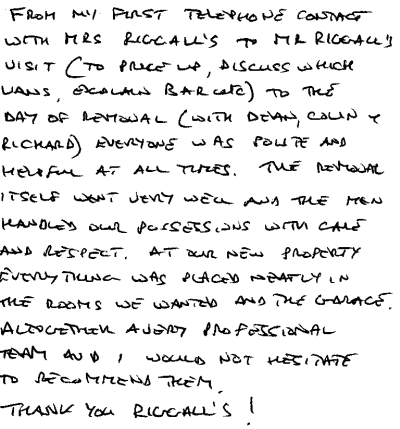 FROM MY FIRST TELEPHONE CONTACT
WITH MRS RIGGALL'S TO MR RIGGALL'S
VISIT (TO PRICE UP, DISCUSS WHICH
VANS, EXPLAIN BAR CODE) TO THE
DAY OF REMOVAL (WITH DEAN, COLIN &
RICHARD) EVERYONE WAS POLITE AND
HELPFUL AT ALL TIMES. THE REMOVAL
ITSELF WENT VERY WELL AND THE MEN
HANDLED OUR POSSESSIONS WITH CARE
AND RESPECT. AT OUR NEW PROPERTY
EVERYTHING WAS PLACED NEATLY IN
THE ROOMS WE WANTED AND THE GARAGE.
ALTOGETHER A VERY PROFESSIONAL
TEAM AND I WOULD NOT HESITATE
TO RECOMMEND THEM.
THANK YOU RIGGALL'S!